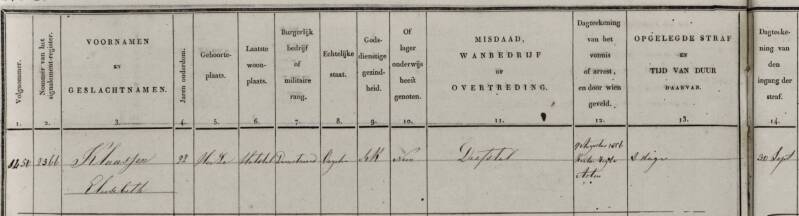 Volgnommer.
Nommer van het signalement-register.
VOORNAMEN
EN
GESLACHTNAMEN.
Jaren ouderdom.
Geboorte-
plaats.
Laatste
woon-
plaats.
Burgerlijk
bedrijf
of
militaire
rang.
Echtelijke
staat.
Gods-
dienstige
gezind-
heid.
Of
lager
onderwijs
heeft
genoten.
MISDAAD,
WANBEDRIJF
OF
OVERTREDING.
Dagteekening
van het
vonnis
of arrest,
en door wien
geveld.
OPGELEGDE STRAF
EN
TIJD VAN DUUR
DAARVAN.
Dagteeke-
ning van
den
ingang der
straf.
1. 2. 3. 4. 5. 6. 7. 8. 9. 10. 11. 12. 13. 14.
1450 2366 Klaassen 22 RK Neen Diefstal 3 dagen 30 Sept
Elisabeth